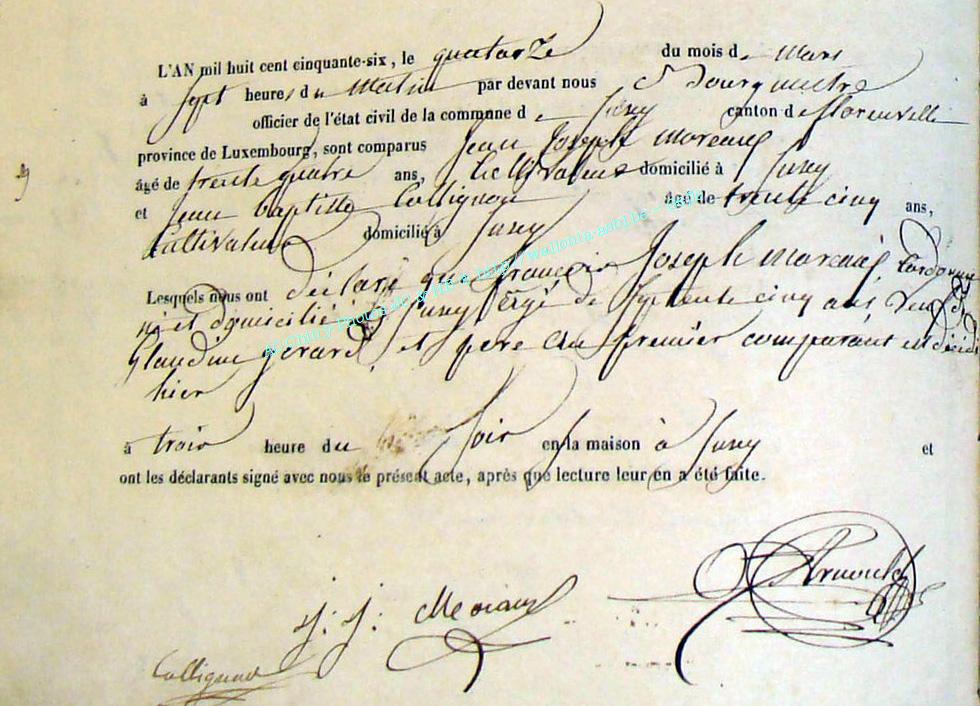 L'AN mil huit cent cinquante-six, le quatorze du mois de Mars
à sept heures du Matin par devant nous
officier de l'état civil de la commune de canton de florenville
province de Luxembourg, sont comparus Jean Joseph Moreau
âgé de trente quatre ans, Cultivateur domicilié à
et Jean baptiste Collignon âgé de trente cinq ans,
Cultivateur domicilié à
Lesquels nous ont déclaré que françois Joseph Moreau, Cordonnier
né et domicilié à agé de septente cinq ans, veuf de
Glaudine gerard, et pere du premier comparant est décédé
hier
à trois heure du soir en la maison à et
ont les déclarants signé avec nous le présent acte, après que lecture leur en a été faite.
J. J. Moreau
Collignon